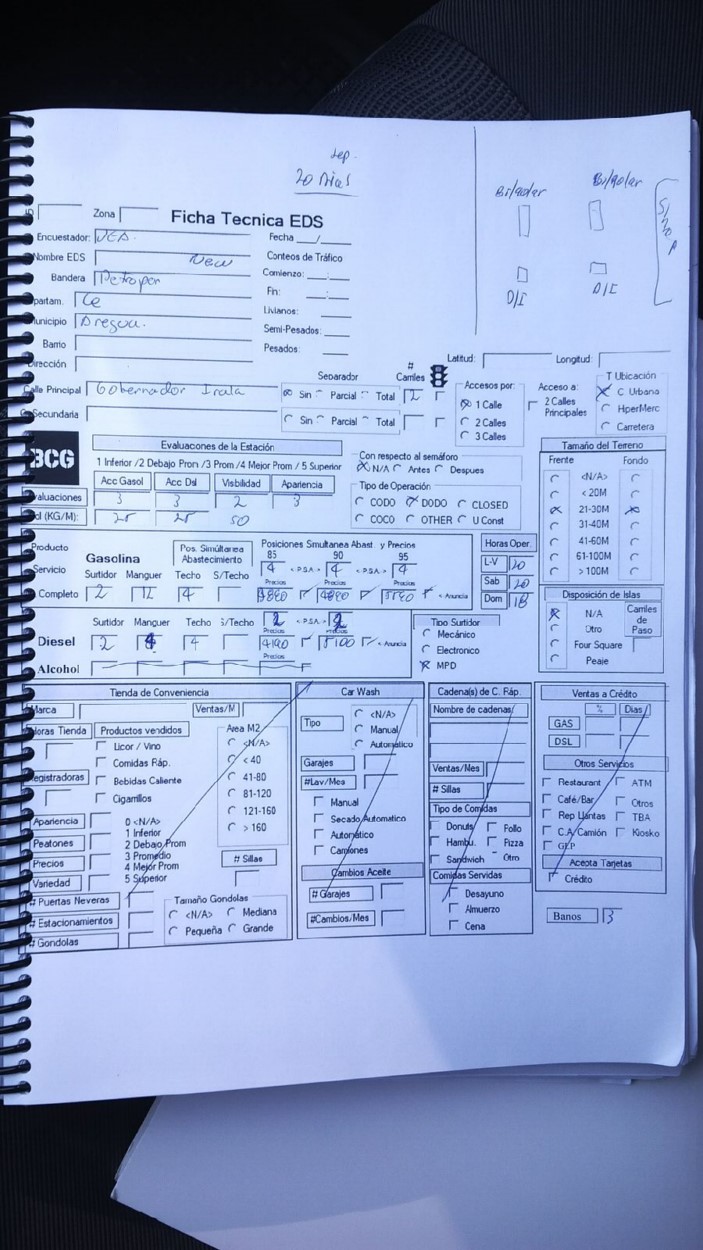 20 Dias
Bipolar
Bipolar
D/I
D/I
Zona
Ficha Tecnica EDS
Encuestador:
Fecha / 
Nombre EDS New
Conteos de Tráfico
Bandera Petropar
Comienzo: :
partam. Ce
Fin: :
Livianos:
unicipio Aregua.
Semi-Pesados:
Barrio
Pesados:
Dirección
Latitud: Longitud:
Calle Principal Gobernador Irala
Separador
# Carriles
Sin Parcial Total 2
C Secundaria
Sin Parcial Total
Accesos por:
1 Calle
2 Calles
3 Calles
Acceso a:
2 Calles Principales
T Ubicación
C. Urbana
HiperMerc
Carretera
BCG
Evaluaciones de la Estación
1 Inferior /2 Debajo Prom /3 Prom /4 Mejor Prom / 5 Superior
Acc Gasol Acc Dsl Visbilidad Apariencia
valuaciones 3 3 2 3
(KG/M): 25 25 50
Con respecto al semáforo
N/A Antes Despues
Tipo de Operación
CODO DODO CLOSED
COCO OTHER U Const
Tamaño del Terreno
Frente Fondo
<N/A>
< 20M
21-30M
31-40M
41-60M
61-100M
> 100M
Producto
Servicio
Completo
Gasolina
Pos. Simultánea Abastecimiento
Posiciones Simultanea Abast. y Precios
85 90 95
4 < P.S.A. > 4 < P.S.A. > 4
Surtidor Manguer Techo S/Techo
Precios Precios Precios
2 12 4
< Anuncia
Horas Oper.
L-V 20
Sab 20
Dom 18
Disposición de Islas
N/A
Otro
Four Square
Peaje
Carriles de Paso
Surtidor Manguer Techo S/Techo
2 < P.S.A. > 2
Precios Precios
Diesel 2 4 4 4190 5100 < Anuncia
Precios
Alcohol
Tipo Surtidor
Mecánico
Electronico
MPD
Tienda de Conveniencia
Marca Ventas/M
oras Tienda
Productos vendidos
Licor / Vino
Comidas Ráp.
Bebidas Caliente
Cigarrillos
egistradoras
Area M2
<N/A>
< 40
41-80
81-120
121-160
> 160
Apariencia
Peatones
Precios
Variedad
0 <N/A>
1 Inferior
2 Debajo Prom
3 Promedio
4 Mejor Prom
5 Superior
# Sillas
# Puertas Neveras
# Estacionamientos
# Gondolas
Tamaño Gondolas
<N/A> Mediana
Pequeña Grande
Car Wash
Tipo
<N/A>
Manual
Automático
Garajes
#Lav/Mes
Manual
Secado Automatico
Automático
Camiones
Cambios Aceite
# Garajes
#Cambios/Mes
Cadena(s) de C. Ráp.
Nombre de cadenas
Ventas/Mes
# Sillas
Tipo de Comidas
Donuts Pollo
Hambu. Pizza
Sandwich Otro
Comidas Servidas
Desayuno
Almuerzo
Cena
Ventas a Crédito
% Dias
GAS
DSL
Otros Servicios
Restaurant ATM
Café/Bar Otros
Rep Llantas TBA
C.A/Camión Kiosko
GLP
Acepta Tarjetas
Crédito
Banos 3